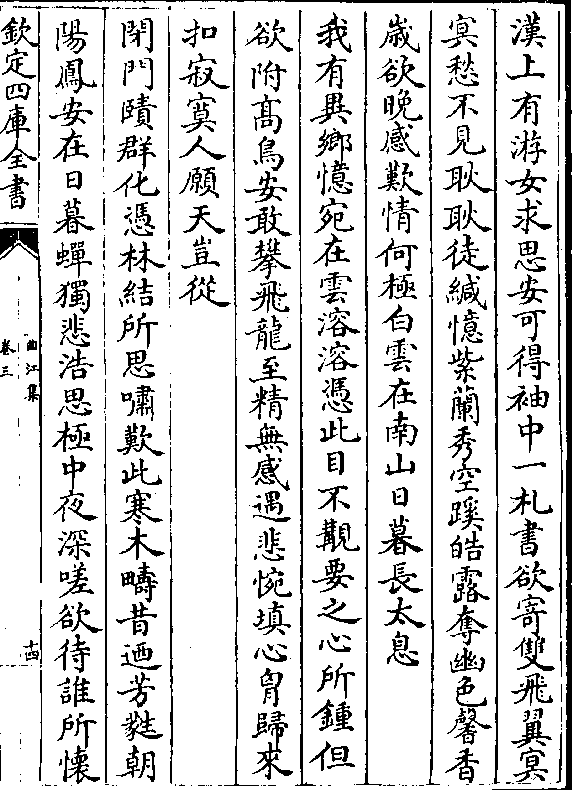 漢上有游女求思安可得袖中一札書欲寄雙飛翼冥
冥愁不見耿耿徒緘憶紫蘭秀空蹊皓露奪幽色馨香
歲欲晚感歎情何極白雲在南山日暮長太息
我有異鄉憶宛在雲溶溶憑此目不覯要之心所鍾但
欲附髙鳥安敢攀飛龍至精無感遇悲惋填心胷歸來
扣寂寞人願天豈從
閉門賾群化憑林結所思嘯歎此寒木疇昔迺芳蕤朝
陽鳳安在日暮蟬獨悲浩思極中夜深嗟欲待誰所懷
欽定四庫全書
曲江集
卷三
十四